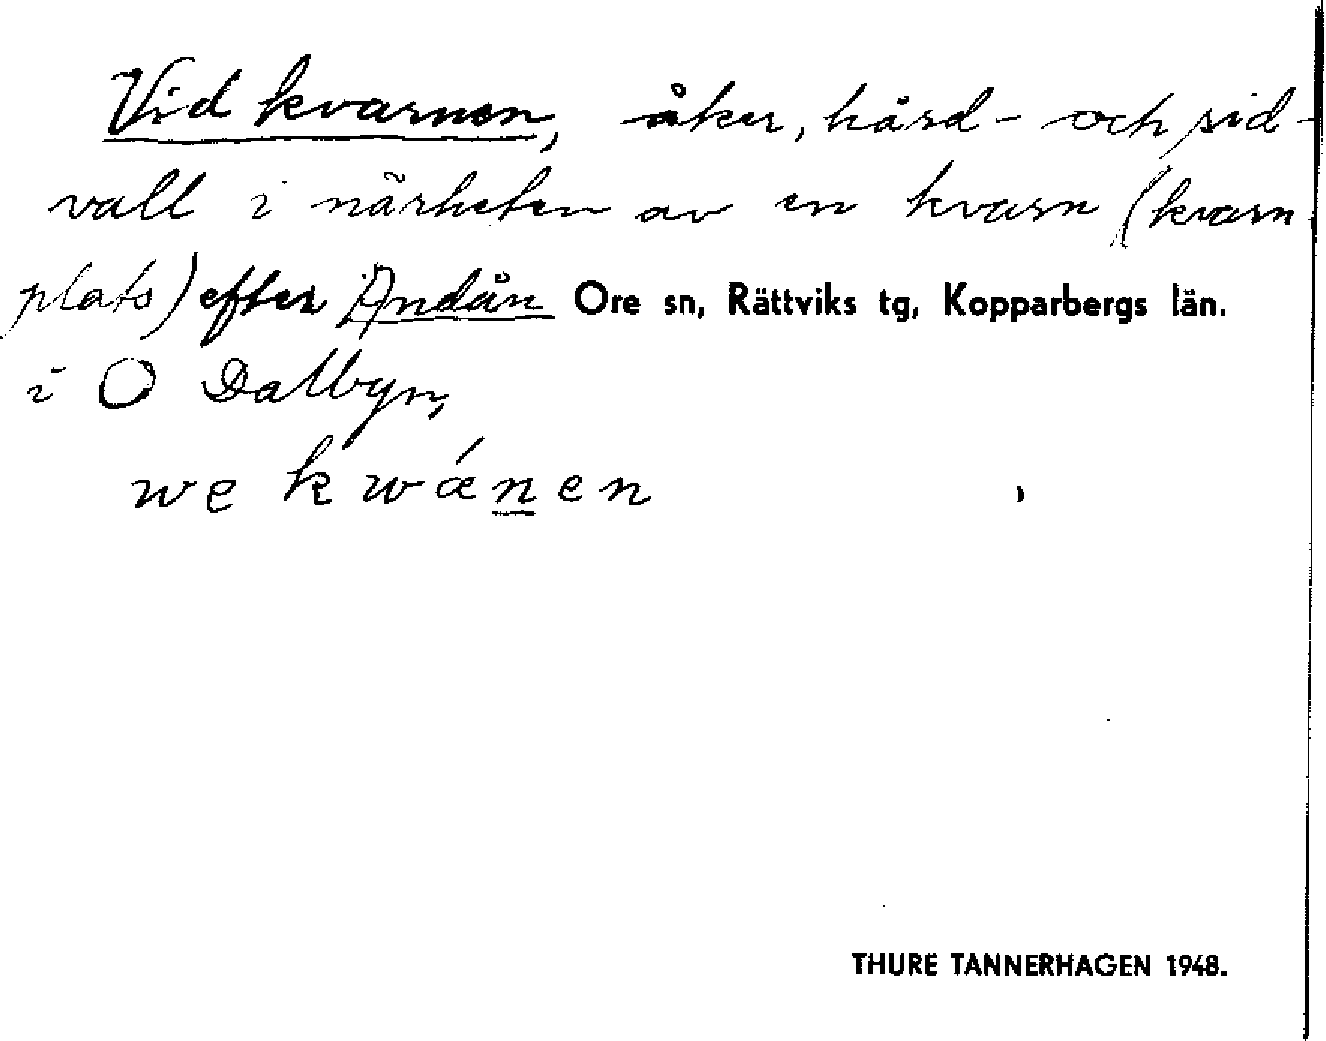 Vid kvarnen, åker, hård- och sid-
vall i närheten av en kvarn (kvarn
plats) efter Andån Ore sn, Rättviks tg, Kopparbergs län.
i O Dalbyn,
we kwǽn̲en
THURE TANNERHAGEN 1948.